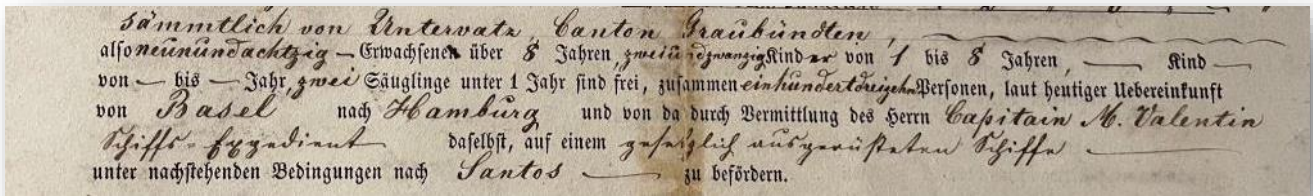 sämmtlich von Untervatz, Canton Graubündten,
also neunundachtzig — Erwachsenen über 8 Jahren, zweiundzwanzig Kinder von 1 bis 8 Jahren, — Kind —
von — bis — Jahr, zwei Säuglinge unter 1 Jahr sind frei, zusammen einhundertdreizehn Personen, laut heutiger Uebereinkunft
von Basel nach Hamburg und von da durch Vermittlung des Herrn Capitain M. Valentin
Schiffs-Expedient daselbst, auf einem gesetzlich ausgerüsteten Schiffe —
unter nachstehenden Bedingungen nach Santos — zu befördern.